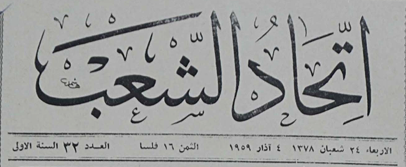 اتحاد الشعب
الاربعاء ٢٤ شعبان ١٣٧٨ ٤ آذار ١٩٥٩ الثمن ١٦ فلسا العدد ٣٢ السنة الاولى